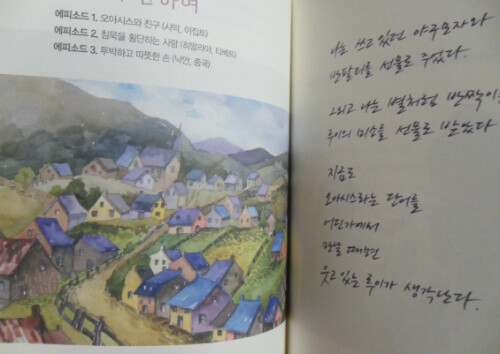 하여
에피소드 1. 오아시스와 친구 (사막, 이집트)
에피소드 2. 침묵을 횡단하는 사람 (히말라야, 티베트)
에피소드 3. 투박하고 따뜻한 손 (낙안, 중국)
나는 쓰고 있던 야구모자와
반달티를 선물로 주었다.
그리고 나는 별처럼 반짝이는
루이의 미소를 선물로 받았다
지금도
오아시스라는 단어를
어딘가에서
만날 때면
웃고 있는 루이가 생각난다.